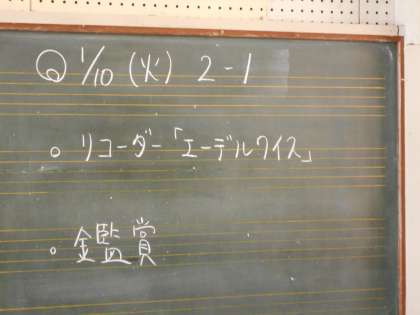 1/10 (火) 2-1
○ リコーダー「エーデルワイス」
○ 鑑賞